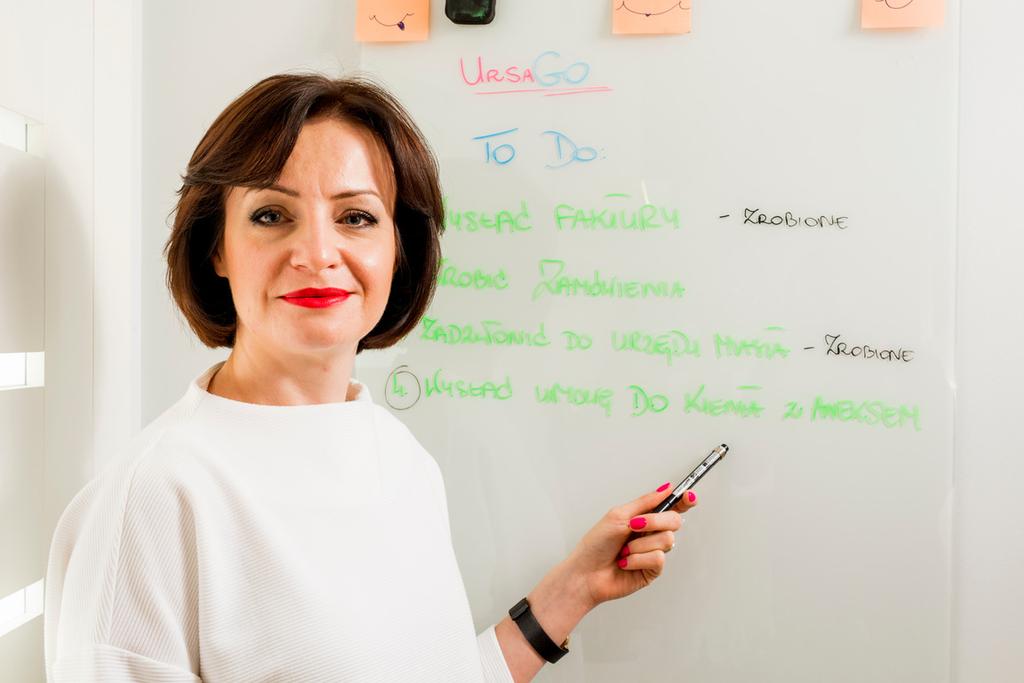 URSAGO
TO DO:
WYSŁAĆ FAKTURY - ZROBIONE
ZROBIĆ ZAMÓWIENIA
ZADZWONIĆ DO URZĘDU MIASTA - ZROBIONE
4. WYSŁAĆ UMOWĘ DO KLIENTA Z ANEKSEM